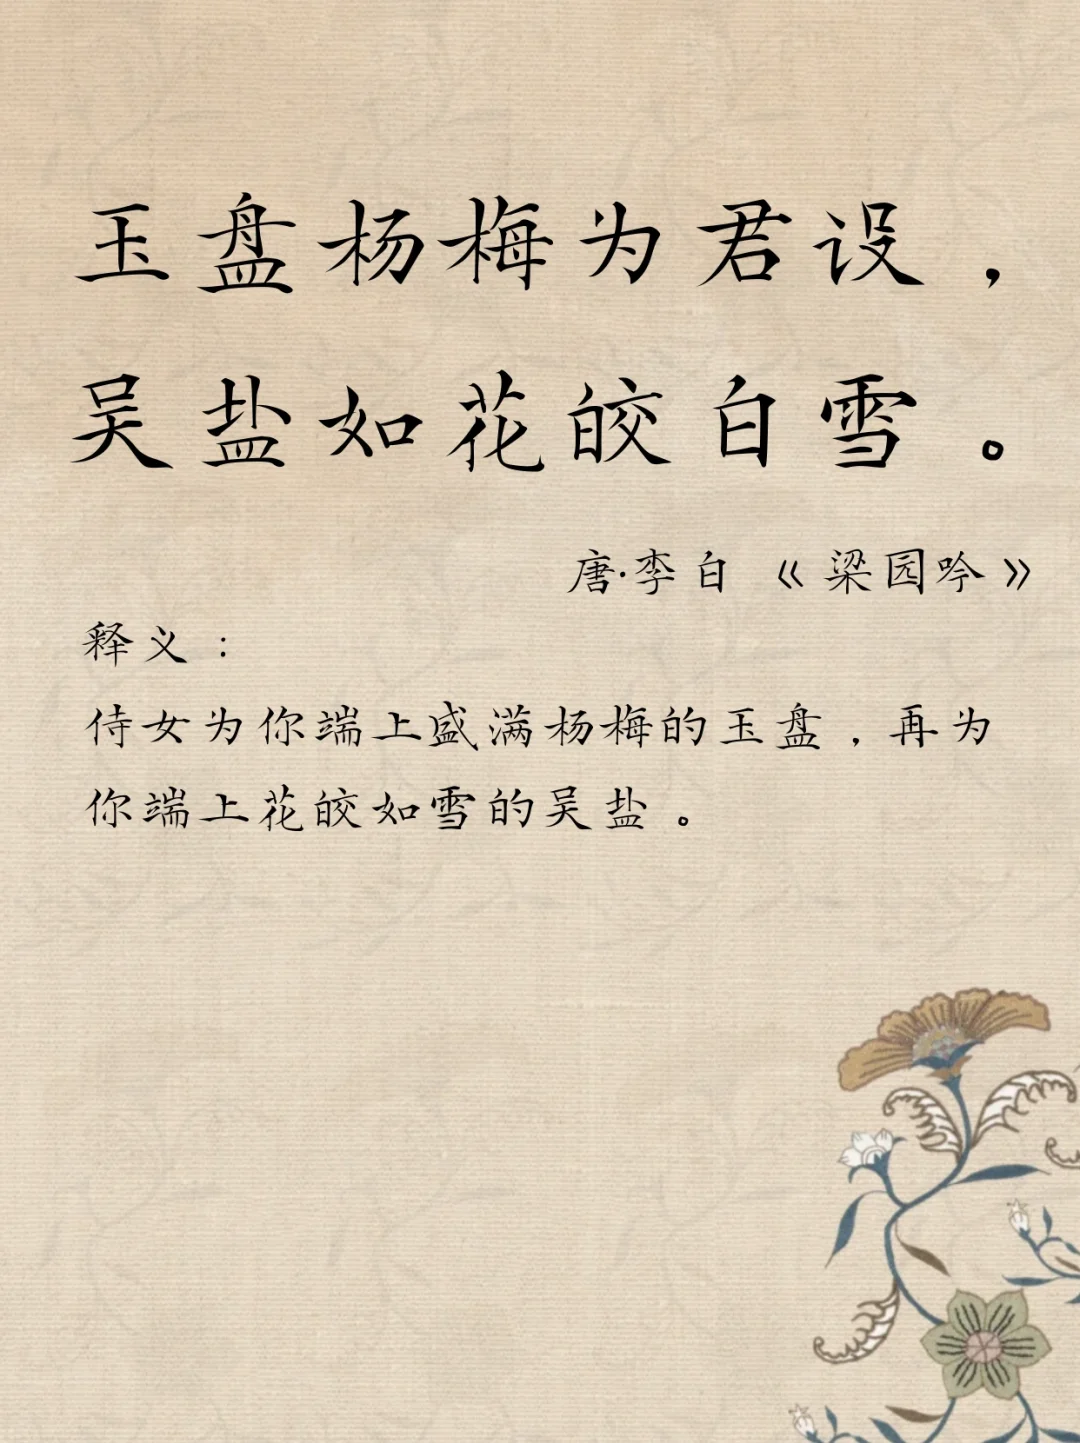 玉盘杨梅为君设，
吴盐如花皎白雪。
唐·李白《梁园吟》
释义：
侍女为你端上盛满杨梅的玉盘，再为
你端上花皎如雪的吴盐。